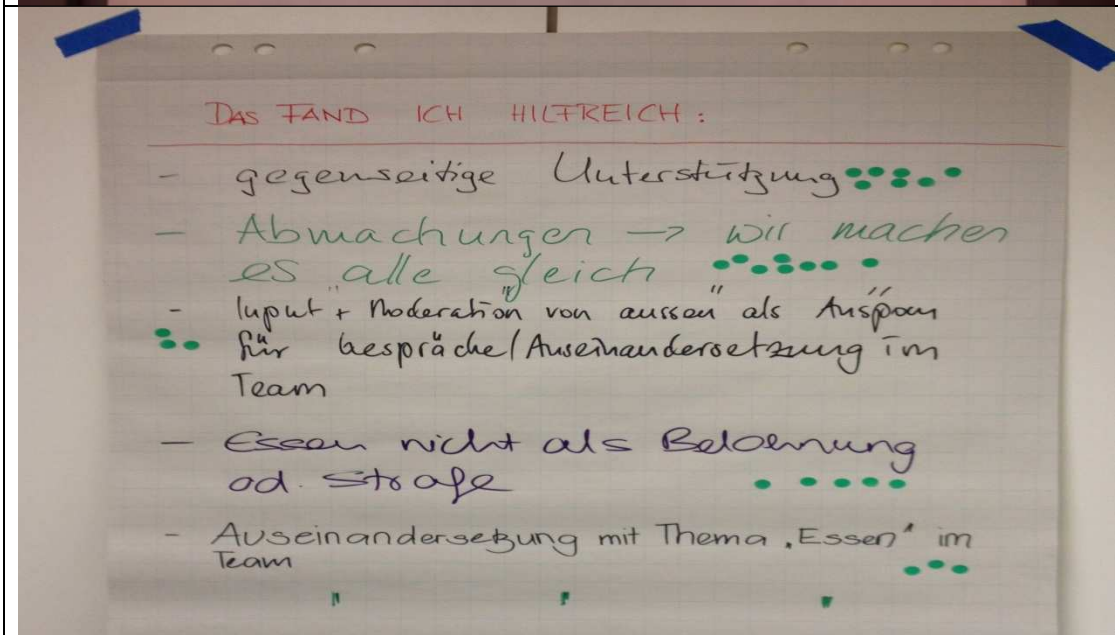 DAS FAND ICH HILFREICH:
- gegenseitige Unterstützung
- Abmachungen → wir machen
es alle "gleich"
- Input + Moderation "von aussen" als Ansporn
für Gespräche/Auseinandersetzung im
Team
- Essen nicht als Belohnung
od. Strafe
- Auseinandersetzung mit Thema "Essen" im
Team